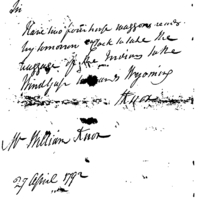 Sir
Have two four horse waggons ready
by tomorrow Clock to take the
baggage of the Indians take
Windgap towards Wyoming
HKnox
Mr William Knox
29 April 1792